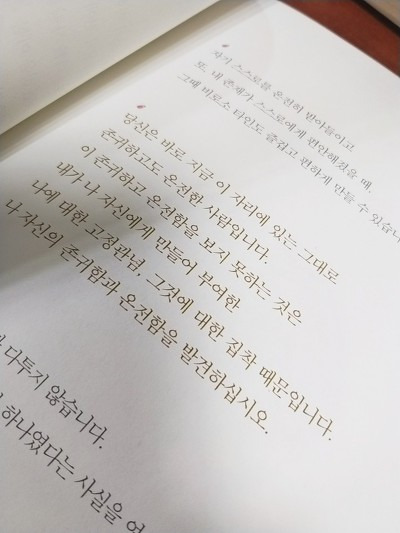 자기 스스로를 온전히 받아들이고
또, 내 존재가 스스로에게 편안해졌을 때,
그때 비로소 타인도 즐겁고 편하게 만들 수 있습니
당신은 바로 지금 이 자리에 있는 그대로
존귀하고도 온전한 사람입니다.
이 존귀하고 온전함을 보지 못하는 것은
내가 나 자신에게 만들어 부여한
나에 대한 고정관념, 그것에 대한 집착 때문입니다.
나 자신의 존귀함과 온전함을 발견하십시오.
다투지 않습니다.
하나였다는 사실을